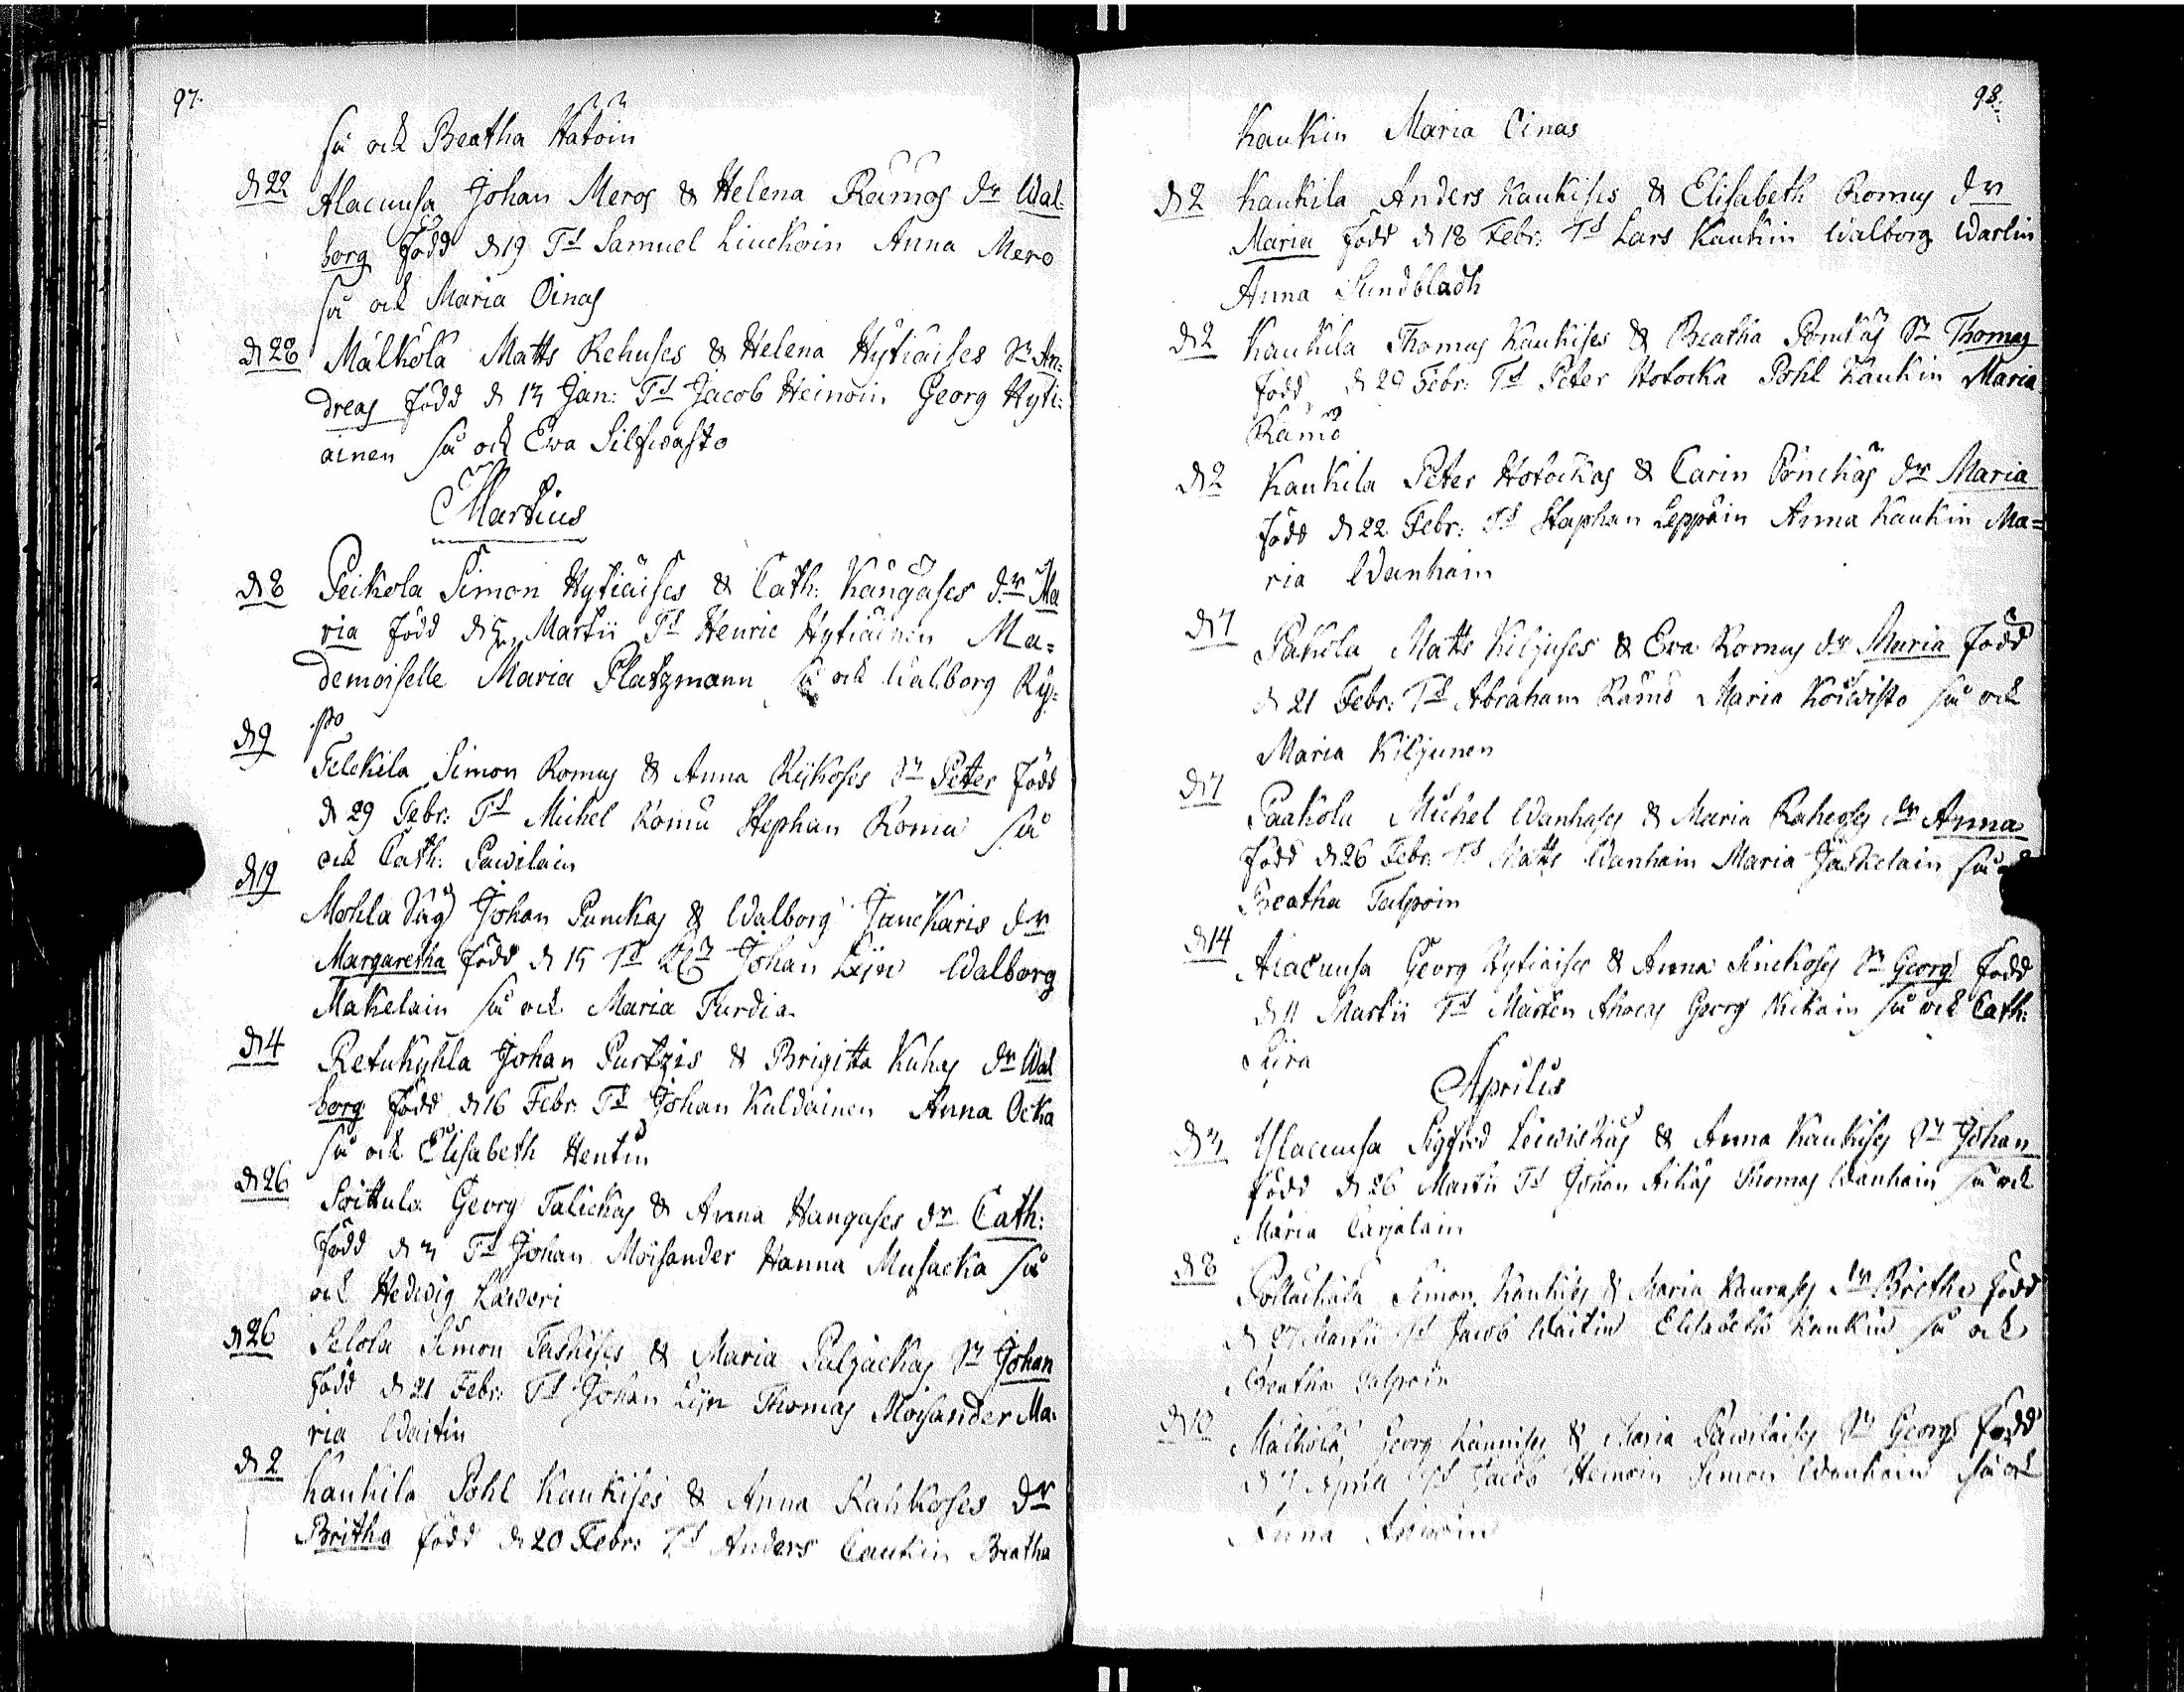 97.
så ock Beatha Hatoin
d 22 Alacuusa Johan Meros & Helena Rämös dr Wal-
borg född d 19 Ts Samuel Liuckoin Anna Mero
så ock Maria Oinas
d 28 Mälkölä Matts Rehuses & Helena Hytiäises Sn An-
dreas född d 13 Jan: Ts Jacob Heinoin Georg Hyti-
ainen så ock Eva Silfwasto
Martius
d 8 Peikola Simon Hytiäises & Cath: Kangases dr Ma
ria född d 5 Martii Ts Henric Hytiäinen Ma=
demoiselle Maria Platzmann så ock Walborg Ry-
po
d 9 Telckila Simon Romus & Anna Rijkoses Sn Petter född
d 29 Febr: Ts Michel Romu Stephan Roma så
ock Cath: Pawilain
d 19 Mohla Johan Punckas & Walborg Junckaris dr
Margaretha född d 15 Ts Johan Lijn Walborg
Makelain så ock Maria Turdia
d 4 Retukyhla Johan Purtzis & Brigitta Kuhas dr Wal
borg född d 16 Febr: Ts Johan Kaldainen Anna Ocka
så ock Elisabeth Hentu
d 26 Soittula Georg Talickas & Anna Hangases dr Cath:
född d 3 Ts Johan Moisander Hanna Musacka så
ock Hedwig Laweri
d 26 Pelola Simon Taskises & Maria Paljackas Sn Johan
född d 21 Febr: Ts Johan Lijn Thomas Moisander Ma-
ria Waitin
d 2 Kaukila Pohl Kaukises & Anna Kahkoses dr
Britha född d 20 Febr: Ts Anders Caukin Beatha
98.
Kaukin Maria Oinas
d 2 Kaukila Anders Kaukises & Elisabeth Romus dr
Maria född d 18 Febr: Ts Lars Kaukin Walborg Warlin
Anna Sundbladh
d 2 Kaukila Thomas Kaukises & Beatha Sn Thomas
född d 29 Febr: Ts Peter Hotocka Pohl Kaukin Maria
Rämö
d 2 Kaukila Peter Hotockas & Carin Pönckäs dr Maria
född d 22 Febr: Ts Staphan Leppöin Anna Kaukin Ma=
ria Wanhain
d 7 Pakola Matts Kiljuses & Eva Romus dr Maria född
d 21 Febr: Ts Abraham Rämö Maria Koiwisto så ock
Maria Kiljunen
d 7 Paakola Michel Wanhases & Maria dr Anna
född d 26 Febr: Ts Matts Wanhain Maria Jäskelain så
Beatha Talpoin
d 14 Alacuusa Georg Hytiäises & Anna Sinckoses Sn Georg född
d 11 Martii Ts Mårten Ahocas Georg Kickain så ock Cath:
Sira
Aprilis
d 3 Ylacuusa Sigfred & Anna Kaukises Sn Johan
född d 26 Martii Ts Johan Äikäs Thomas Wanhain så ock
Maria Carjalain
d 8 Simon Kaukises & Maria dr Britha född
d 27 Martii Ts Jacob Waitin Elisabeth Kaukin så ock
Beatha Talpoin
d 10 Mälkölä Georg & Maria Pawilaises Sn Georg född
d 7 April Ts Jacob Heinoin Simon Wanhain så ock
Anna